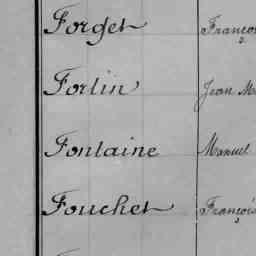 Forget Franço
Fortin Jean M
Fontaine Manuel
Fouchet François